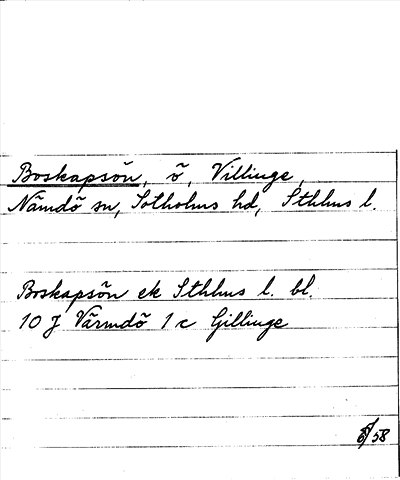 Boskapsön, ö, Villinge,
Nämdö sn, Sotholms hd, Sthlms l.
Boskapsön ek Sthlms l. bl.
10 J Värmdö 1 c Gillinge
/58